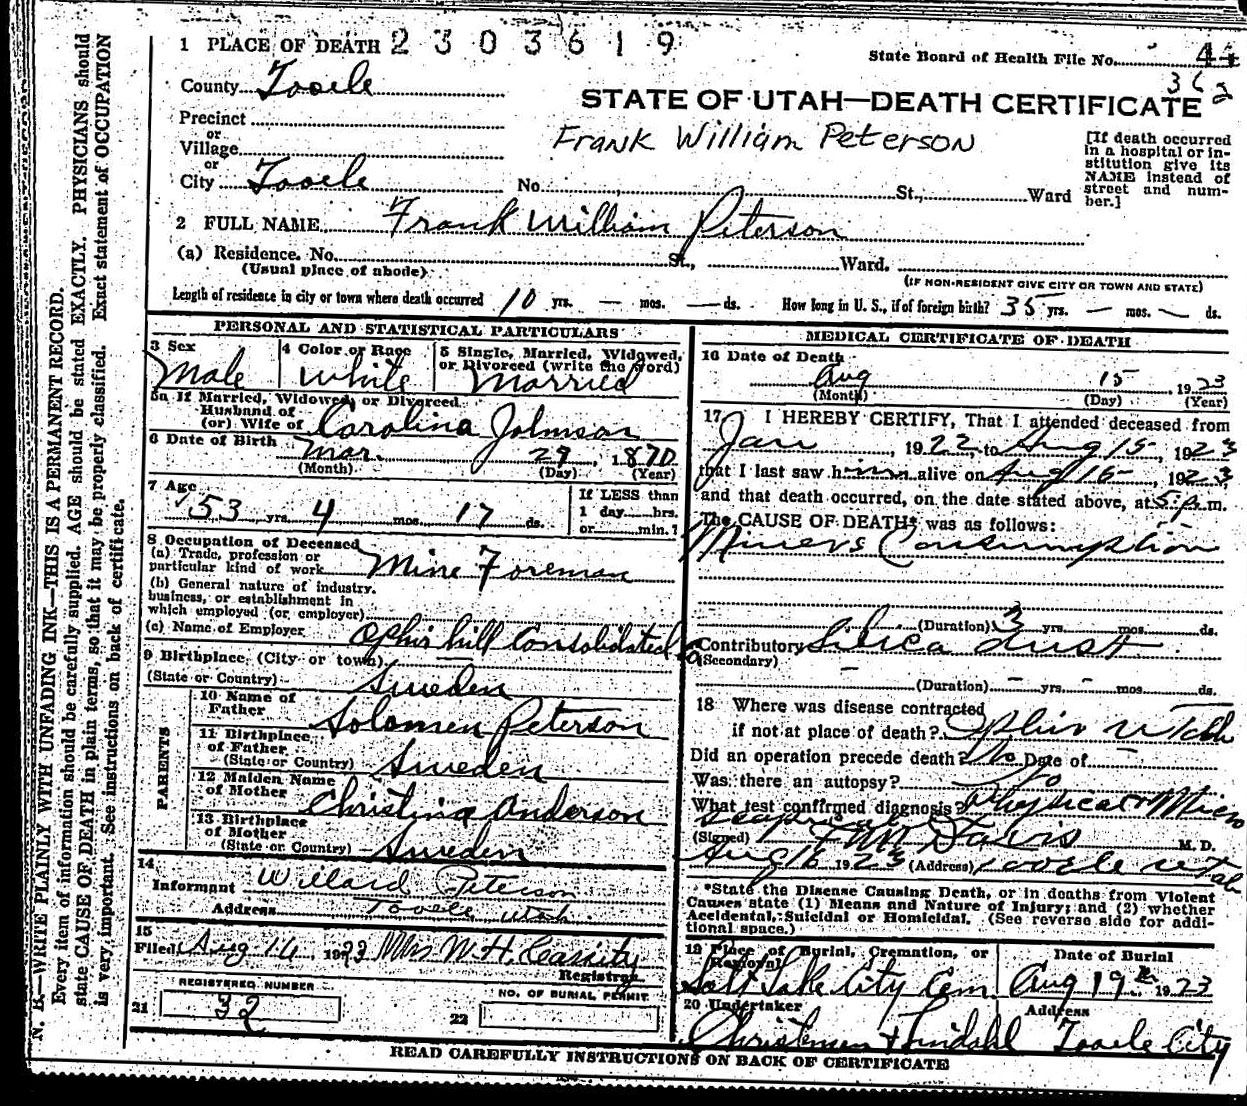 1 PLACE OF DEATH 2303619
State Board of Health File No. 44
362
County Tooele
STATE OF UTAH—DEATH CERTIFICATE
Precinct
or
Village
or
City Tooele No. St., Ward
Frank William Peterson
[If death occurred in a hospital or in-
stitution give its
NAME instead of
street and num-
ber.]
2 FULL NAME Frank William Peterson
(a) Residence. No. St., Ward.
(Usual place of abode) (IF NON-RESIDENT GIVE CITY OR TOWN AND STATE)
Length of residence in city or town where death occurred 10 yrs. — mos. — ds. How long in U. S., if of foreign birth? 35 yrs. — mos. — ds.
PERSONAL AND STATISTICAL PARTICULARS
3 Sex 4 Color or Race 5 Single, Married, Widowed, or Divorced (write the word)
Male White Married
5a If Married, Widowed, or Divorced
Husband of
(or) Wife of Carolina Johnson
6 Date of Birth Mar. 29, 1870
(Month) (Day) (Year)
7 Age
53 yrs. 4 mos. 17 ds.
If LESS than
1 day hrs.
or min.?
8 Occupation of Deceased
(a) Trade, profession or
particular kind of work Mine Foreman
(b) General nature of industry,
business, or establishment in
which employed (or employer)
(c) Name of Employer Ophir hill Consolidated
9 Birthplace (City or town)
(State or Country) Sweden
PARENTS
10 Name of
Father Solomen Peterson
11 Birthplace
of Father
(State or Country) Sweden
12 Maiden Name
of Mother Christina Anderson
13 Birthplace
of Mother
(State or Country) Sweden
14
Informant Willard Peterson
Address Tooele Utah
15
Filed Aug 16 1923 Mrs W. H. Cassity
Registrar
REGISTERED NUMBER NO. OF BURIAL PERMIT
21 32 22
MEDICAL CERTIFICATE OF DEATH
16 Date of Death
Aug 15 1923
(Month) (Day) (Year)
17 I HEREBY CERTIFY, That I attended deceased from
Jan, 1922, to Aug 15, 1923
that I last saw him alive on Aug 15, 1923
and that death occurred, on the date stated above, at 5 p.m.
The CAUSE OF DEATH* was as follows:
Miners Consumption
(Duration) 3 yrs. mos. ds.
Contributory Silica dust
(Secondary)
(Duration) - yrs. - mos. ds.
18 Where was disease contracted
if not at place of death? Ophir Utah
Did an operation precede death? No Date of —
Was there an autopsy? No
What test confirmed diagnosis? Physical & Micro
(Signed) Davis M. D.
Aug 16 1923 (Address) Tooele Utah
*State the Disease Causing Death, or in deaths from Violent
Causes state (1) Means and Nature of Injury; and (2) whether
Accidental, Suicidal or Homicidal. (See reverse side for addi-
tional space.)
19 Place of Burial, Cremation, or Removal Date of Burial
Salt Lake City Cem. Aug 19 1923
20 Undertaker Address
Christensen & Lindahl Tooele City
READ CAREFULLY INSTRUCTIONS ON BACK OF CERTIFICATE
N. B.—WRITE PLAINLY WITH UNFADING INK—THIS IS A PERMANENT RECORD.
Every item of information should be carefully supplied. AGE should be stated EXACTLY. PHYSICIANS should
state CAUSE OF DEATH in plain terms, so that it may be properly classified. Exact statement of OCCUPATION
is very important. See instructions on back of certificate.